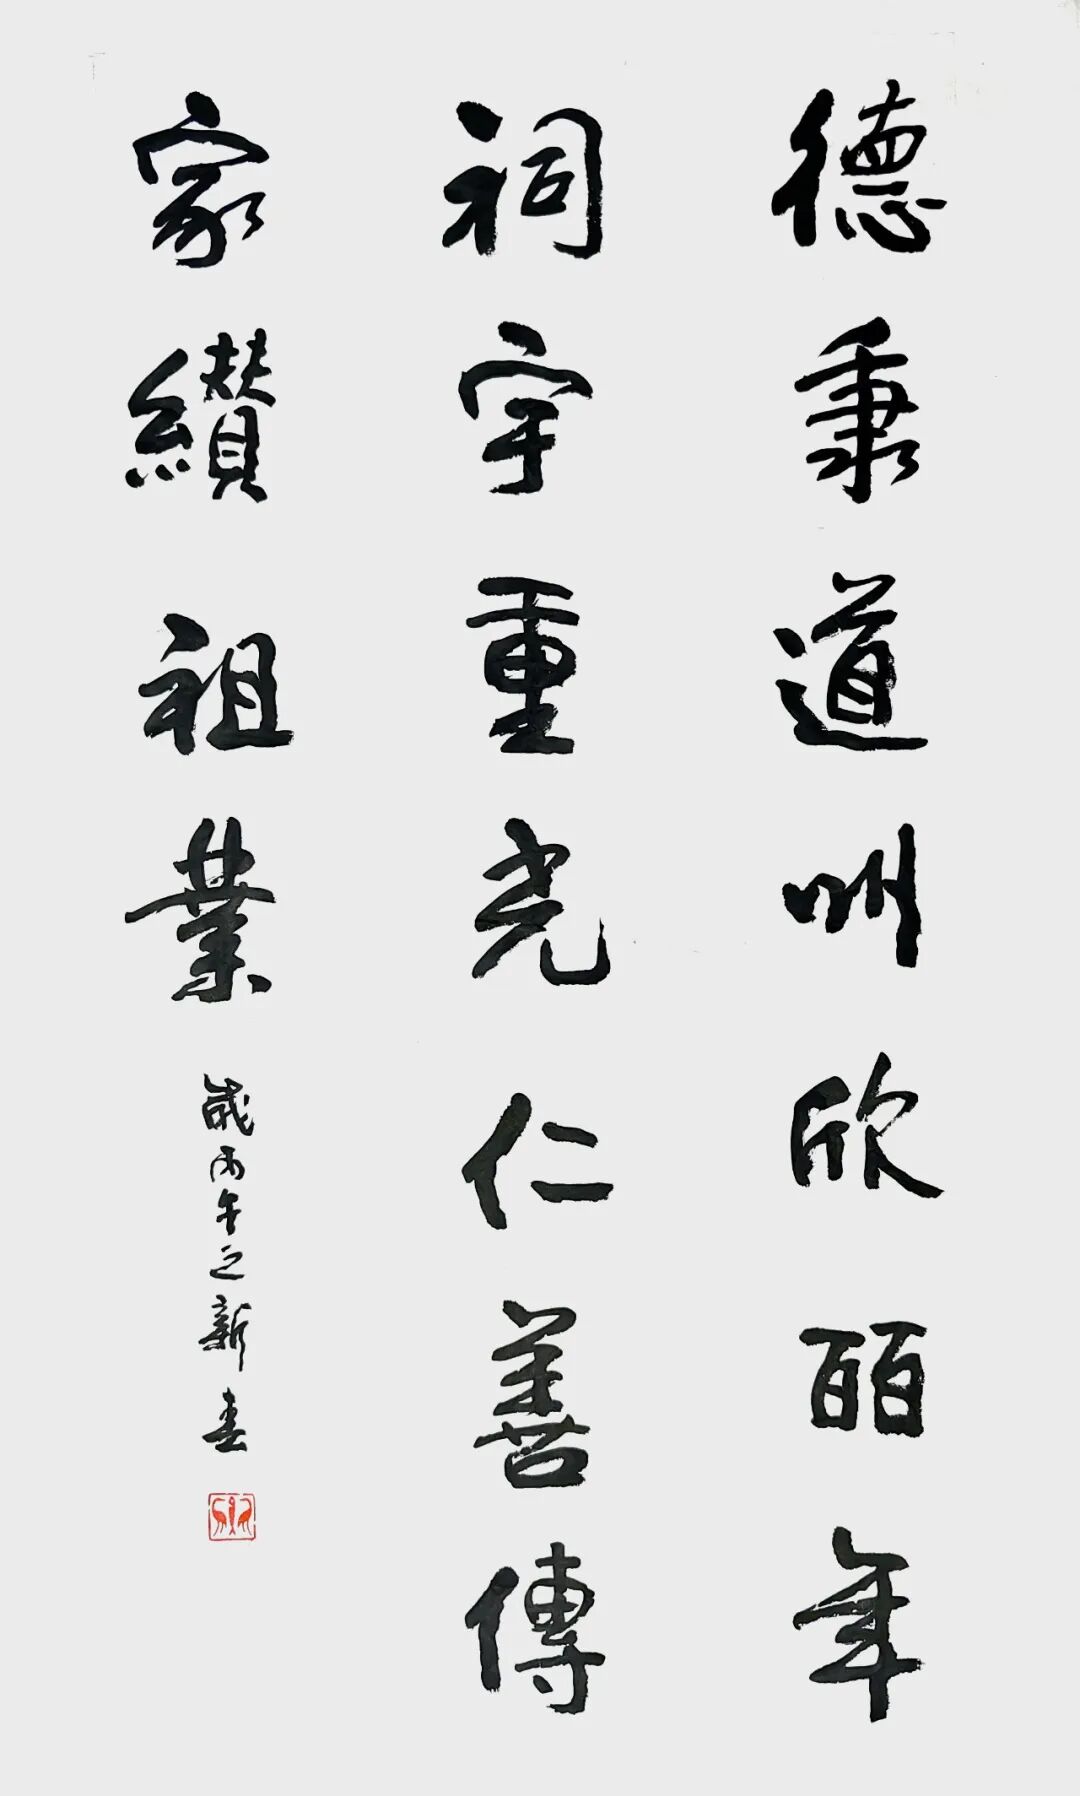 德秉道州欣皕年
祠宇重光仁善傳
家纘祖業 歲丙午之新春